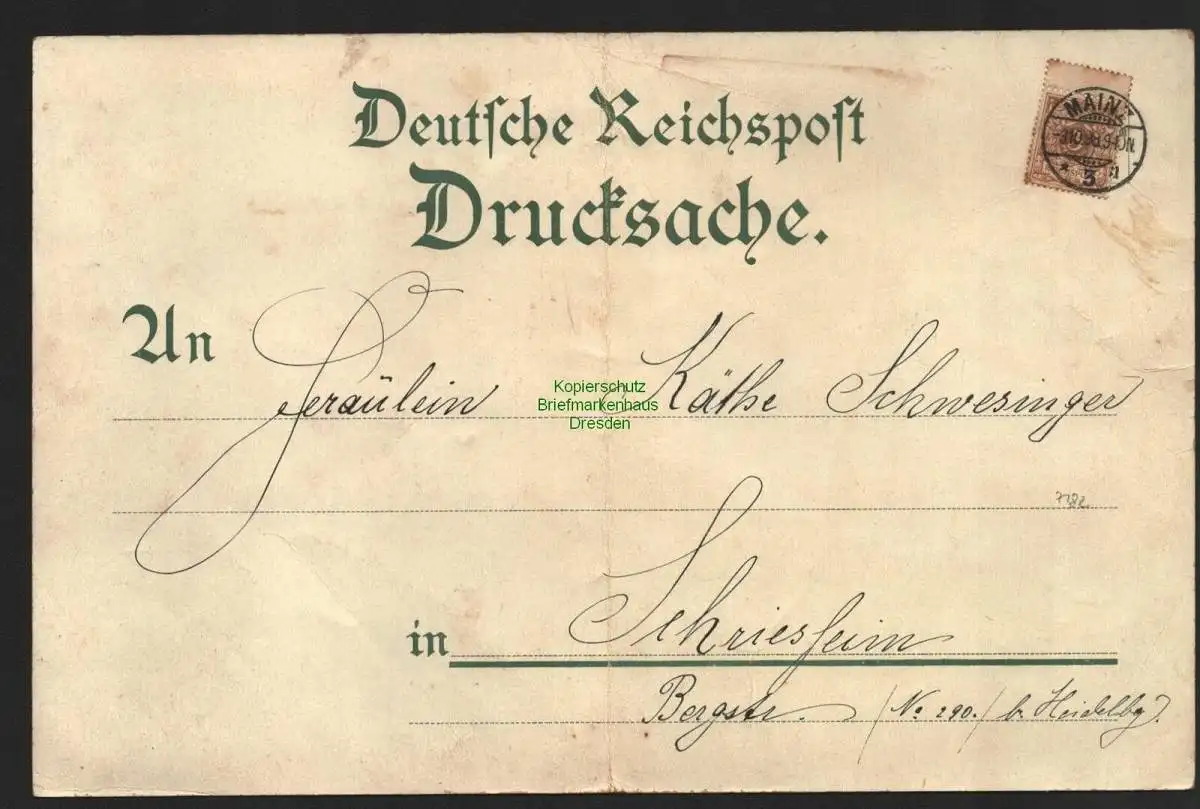 Deutsche Reichspost
Drucksache.
MAINZ
3
An Fräulein Käthe Schwesinger
Kopierschutz
Briefmarkenhaus
Dresden
in Schriesheim
Bergstr. (No 290.) b. Heidelbg.